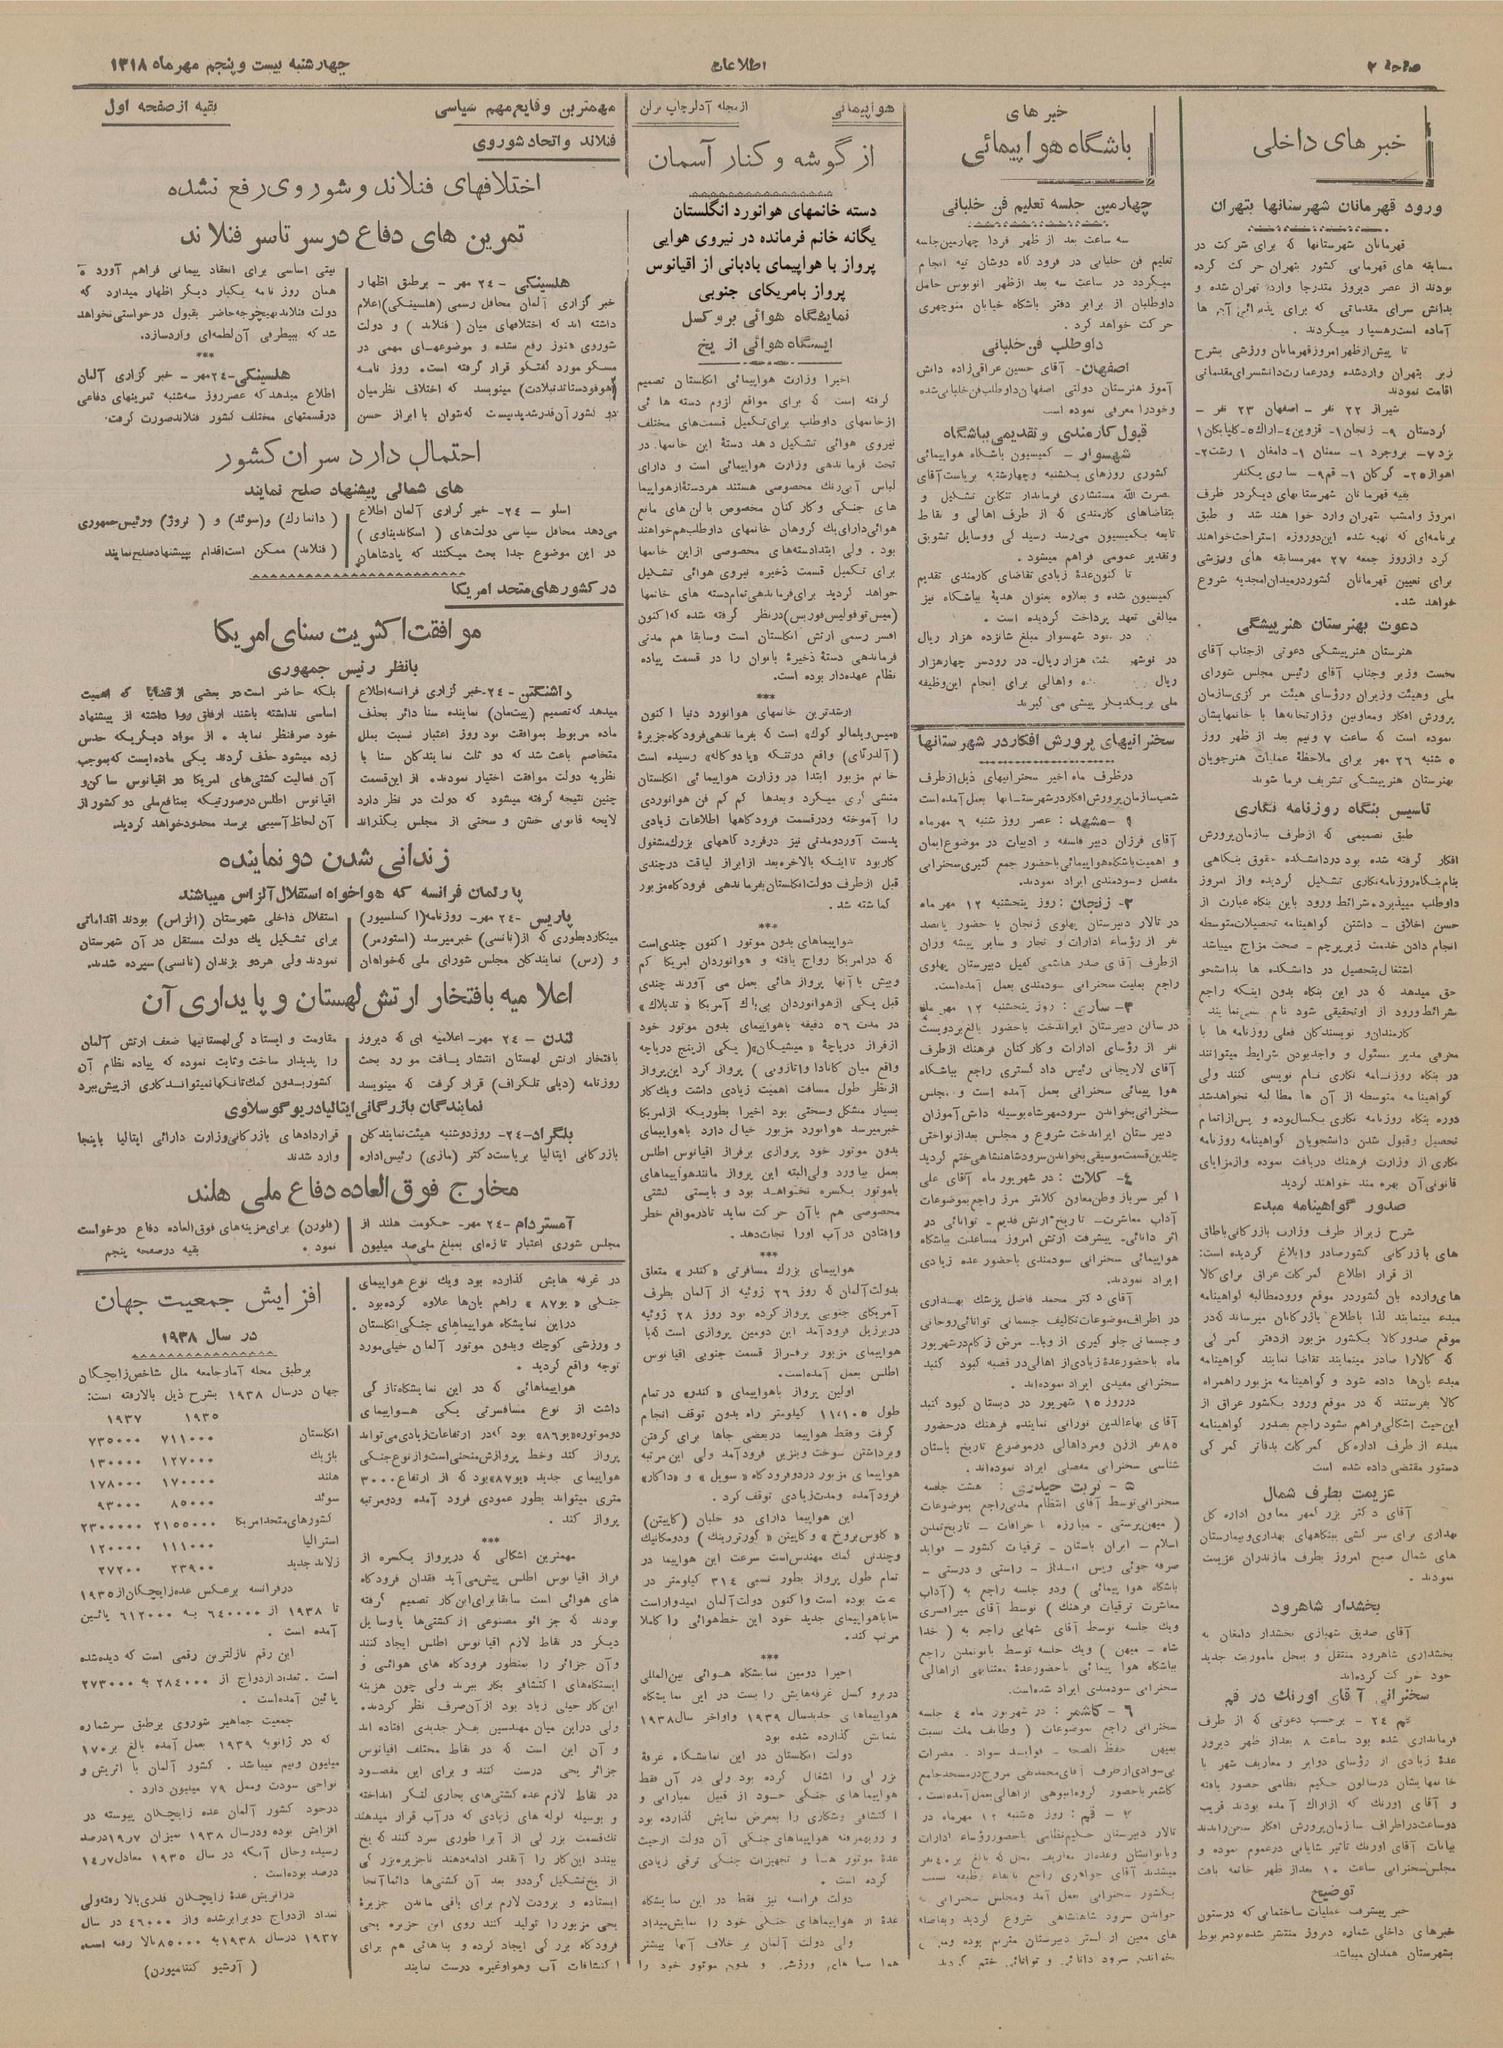 صفحه ۲
اطلاعات
چهارشنبه بیست و پنجم مهرماه ۱۳۱۸
خبرهای داخلی
ورود قهرمانان شهرستانها بتهران
قهرمانان شهرستانها که برای شرکت در
مسابقه های قهرمانی کشور بتهران حرکت کرده
بودند از عصر دیروز متدرجا وارد تهران شده و
بدانش سرای مقدماتی که برای پذیرائی آنها
آماده است رهسپار میگردند.
تا پیش از ظهر امروز قهرمانان ورزشی بشرح
زیر بتهران وارد شده و در عمارت دانشسرای مقدماتی
اقامت نمودند
شیراز ۲۲ نفر - اصفهان ۲۳ نفر -
کردستان ۹- زنجان ۱- قزوین ۴- اراك ۵- گلپایگان ۱
یزد ۷- بروجرد ۱- سمنان ۱- دامغان ۱ رشت ۲-
اهواز ۲۵- گرگان ۱- قم ۹- ساری یکنفر
بقیه قهرمانان شهرستانهای دیگر در ظرف
امروز و امشب بتهران وارد خواهند شد و طبق
برنامه‌ای که تهیه شده این دو روزه استراحت خواهند
کرد و از روز جمعه ۲۷ مهر مسابقه های ورزشی
برای تعیین قهرمانان کشور در میدان امجدیه شروع
خواهد شد.
دعوت بهنرستان هنرپیشگی
هنرستان هنرپیشگی دعوتی از جناب آقای
نخست وزیر و جناب آقای رئیس مجلس شورای
ملی و هیئت وزیران و رؤسای هیئت مرکزی سازمان
پرورش افکار و معاونین وزارتخانه‌ها با خانمهایشان
نموده است که ساعت ۷ و نیم بعد از ظهر روز
۵ شنبه ۲۶ مهر برای ملاحظهٔ عملیات هنرجویان
بهنرستان هنرپیشگی تشریف فرما شوند
تاسیس بنگاه روزنامه نگاری
طبق تصمیمی که از طرف سازمان پرورش
افکار گرفته شده بود در دانشکده حقوق بنگاهی
بنام بنگاه روزنامه نگاری تشکیل گردیده و از امروز
داوطلب میپذیرد. شرائط ورود باین بنگاه عبارت از
حسن اخلاق - داشتن گواهینامه تحصیلات متوسطه
انجام دادن خدمت زیر پرچم - صحت مزاج میباشد
اشتغال بتحصیل در دانشکده ها بدانشجو
حق میدهد که در این بنگاه بدون اینکه راجع
بشرائط ورود از او تحقیقی شود نام نویسی نمایند
کارمندان و نویسندگان فعلی روزنامه ها با
معرفی مدیر مسئول و واجد بودن شرایط میتوانند
در بنگاه روزنامه نگاری نام نویسی کنند ولی
گواهینامه متوسطه از آن ها مطالبه نخواهد شد
دوره بنگاه روزنامه نگاری یکسال بوده و پس از اتمام
تحصیل و قبول شدن دانشجویان گواهینامه روزنامه
نگاری از وزارت فرهنگ دریافت نموده و از مزایای
قانونی آن بهره مند خواهند گردید
صدور گواهینامه مبدء
شرح زیر از طرف وزارت بازرگانی باطاق
های بازرگانی کشور صادر و ابلاغ گردیده است:
از قرار اطلاع گمرکات عراق برای کالا
های وارده بآن کشور در موقع ورود مطالبه گواهینامه
مبدء مینمایند لذا باطلاع بازرگانان میرساند که در
موقع صدور کالا بکشور مزبور از دفتر گمرکی
که کالا را صادر مینمایند تقاضا نمایند گواهینامه
مبدء بآن‌ها داده شود و گواهینامه مزبور را همراه
کالا بفرستند که در موقع ورود بکشور عراق از
این حیث اشکالی فراهم نشود راجع بصدور گواهینامه
مبدء از طرف اداره کل گمرکات بدفاتر گمرکی
دستور مقتضی داده شده است
عزیمت بطرف شمال
آقای دکتر بزرگمهر معاون اداره کل
بهداری برای سرکشی ببنگاههای بهداری و بیمارستان
های شمال صبح امروز بطرف مازندران عزیمت
نمودند.
بخشدار شاهرود
آقای صدیق شهبازی بخشدار دامغان به
بخشداری شاهرود منتقل و بمحل ماموریت جدید
خود حرکت کرده‌اند
سخنرانی آقای اورنك در قم
قم ۲۴ - برحسب دعوتی که از طرف
فرمانداری شده بود ساعت ۸ بعد از ظهر دیروز
عدهٔ زیادی از رؤسای دوایر و معاریف شهر با
خانمهایشان در سالون حکیم نظامی حضور یافته
و آقای اورنك که از اراك آمده بودند قریب
دو ساعت در اطراف سازمان پرورش افکار سخن راندند
بیانات آقای اورنك تاثیر شایانی در عموم نموده و
مجلس سخنرانی ساعت ۱۰ بعد از ظهر خاتمه یافت
توضیح
خبر پیشرفت عملیات ساختمانی که در ستون
خبرهای داخلی شماره دیروز منتشر شده بود مربوط
بشهرستان همدان میباشد
خبرهای
باشگاه هواپیمائی
چهارمین جلسه تعلیم فن خلبانی
سه ساعت بعد از ظهر فردا چهارمین جلسه
تعلیم فن خلبانی در فرودگاه دوشان تپه انجام
میگردد در ساعت سه بعد از ظهر اتوبوس حامل
داوطلبان از برابر دفتر باشگاه خیابان منوچهری
حرکت خواهد کرد.
داوطلب فن خلبانی
اصفهان- آقای حسین عراقی زاده دانش
آموز هنرستان دولتی اصفهان داوطلب فن خلبانی شده
و خود را معرفی نموده است
قبول کارمندی و تقدیمی بباشگاه
شهسوار - کمیسیون باشگاه هواپیمائی
کشوری روزهای یکشنبه و چهارشنبه بریاست آقای
نصرت الله مستشاری فرماندار تنکابن تشکیل و
بتقاضاهای کارمندی که از طرف اهالی و نقاط
تابعه بکمیسیون می‌رسد رسیدگی و وسایل تشویق
و تقدیر عمومی فراهم میشود.
تا کنون عدهٔ زیادی تقاضای کارمندی تقدیم
کمیسیون شده و بعلاوه بعنوان هدیهٔ بباشگاه نیز
مبالغی تعهد پرداخت گردیده است.
در خود شهسوار مبلغ شانزده هزار ریال
در نوشهر هشت هزار ریال- در رودسر چهار هزار
ریال و اهالی برای انجام این وظیفه
ملی بر یکدیگر پیشی می گیرند
سخنرانیهای پرورش افکار در شهرستانها
در ظرف ماه اخیر سخنرانیهای ذیل از طرف
شعب سازمان پرورش افکار در شهرستانها بعمل آمده است
۱ - مشهد: عصر روز شنبه ۶ مهرماه
آقای فرزان دبیر فلسفه و ادبیات در موضوع ایمان
و اهمیت باشگاه هواپیمائی با حضور جمع کثیری سخنرانی
مفصل و سودمندی ایراد نمودند.
۲- زنجان: روز پنجشنبه ۱۲ مهر ماه
در تالار دبیرستان پهلوی زنجان با حضور پانصد
نفر از رؤساء ادارات و تجار و سایر پیشه وران
از طرف آقای صدر هاشمی کفیل دبیرستان پهلوی
راجع بملیت سخنرانی سودمندی بعمل آمده است.
۳- ساری: روز پنجشنبه ۱۲ مهر ماه
در سالن دبیرستان ایراندخت با حضور بالغ بر دویست
نفر از رؤسای ادارات و کارکنان فرهنك از طرف
آقای لاریجانی رئیس دادگستری راجع بباشگاه
هواپیمائی سخنرانی بعمل آمده است و مجلس
سخنرانی بخواندن سرود مهر شاه بوسیله دانش آموزان
دبیرستان ایراندخت شروع و مجلس بعد از نواختن
چندین قسمت موسیقی بخواندن سرود شاهنشاهی ختم گردید
۴- کلات: در شهریور ماه آقای علی
اکبر سرباز وطن معاون کلانتر مرز راجع بموضوعات
آداب معاشرت- تاریخ ارتش قدیم - توانائی در
اثر دانائی- پیشرفت ارتش امروز مساعدت بباشگاه
هواپیمائی سخنرانی سودمندی با حضور عده زیادی
ایراد نمودند.
آقای دکتر محمد فاضل پزشك بهداری
در اطراف موضوعات تکالیف جسمانی توانائی روحانی
و جسمانی جلوگیری از وبا- مرض زکام در شهریور
ماه با حضور عدهٔ زیادی از اهالی در قصبه کبود گنبد
سخنرانی مفیدی ایراد نموده‌اند.
در روز ۱۵ شهریور در دبستان کبود گنبد
آقای بهاءالدین نورانی نماینده فرهنك در حضور
۸۵ نفر از زن و مرد اهالی در موضوع تاریخ باستان
شناسی سخنرانی مفصلی ایراد نموده‌اند.
۵ - تربت حیدری: هشت جلسه
سخنرانی توسط آقای انتظام مدنی راجع بموضوعات
(میهن پرستی - مبارزه با خرافات - تاریخ تمدن
اسلام - ایران باستان - ترقیات کشور - فواید
صرفه جوئی و پس انداز - راستی و درستی -
باشگاه هواپیمائی) و دو جلسه راجع به (آداب
معاشرت ترقیات فرهنك) توسط آقای میر افسری
و یك جلسه توسط آقای شهابی راجع به (خدا
شاه - میهن) و یك جلسه توسط بانو تمدن راجع
بباشگاه هواپیمائی با حضور عدهٔ معتنابهی از اهالی
سخنرانی سودمندی ایراد شده است.
۶ - کاشمر: در شهریور ماه ۴ جلسه
سخنرانی راجع بموضوعات (وظایف ملت نسبت
بمیهن حفظ الصحه - فواید سواد. مضرات
بی سوادی از طرف آقای محمد تقی مروج در مسجد جامع
کاشمر با حضور گروه انبوهی از اهالی بعمل آمده است.
۷ - قم: روز ۵ شنبه ۱۲ مهرماه در
تالار دبیرستان حکیم نظامی با حضور رؤساء ادارات
و بانوانشان و عده‌ای از معاریف محل که بالغ بر ۴۰۰ نفر
میشدند آقای جواهری راجع بایفاء وظیفه نسبت
بکشور سخنرانی بعمل آمد و مجلس سخنرانی به
خواندن سرود شاهنشاهی شروع گردید و بفاصله
های معین از ارکستر دبیرستان مترنم بوده و
بخواندن سرود دانائی و توانائی ختم گردید
هواپیمائی
از مجله آدلر چاپ برلن
از گوشه و کنار آسمان
دسته خانمهای هوانورد انگلستان
یگانه خانم فرمانده در نیروی هوایی
پرواز با هواپیمای بادبانی از اقیانوس
پرواز بامریکای جنوبی
نمایشگاه هوائی بروکسل
ایستگاه هوائی از یخ
اخیرا وزارت هواپیمائی انگلستان تصمیم
گرفته است که برای مواقع لزوم دسته هائی
از خانمهای داوطلب برای تکمیل قسمت‌های مختلف
نیروی هوائی تشکیل دهد دستهٔ این خانمها در
تحت فرماندهی وزارت هواپیمائی است و دارای
لباس آبی رنك مخصوصی هستند هر دستهٔ از هواپیما
های جنگی و کارکنان مخصوص بالن های مانع
هوائی دارای یك گروهان خانمهای داوطلب هم خواهند
بود. ولی ابتدا دسته‌های مخصوصی از این خانمها
برای تکمیل قسمت ذخیره نیروی هوائی تشکیل
خواهد گردید برای فرماندهی تمام دسته های خانمها
(میس ترفولیس فوربس) در نظر گرفته شده که اکنون
افسر رسمی ارتش انگلستان است و سابقا هم مدتی
فرماندهی دستهٔ ذخیرهٔ بانوان را در قسمت پیاده
نظام عهده‌دار بوده است.
***
ارشدترین خانمهای هوانورد دنیا اکنون
«میس ویلما لو کوك» است که بفرماندهی فرودگاه جزیرهٔ
(آلدرنای) واقع در تنگه «پادوکاله» رسیده است
خانم مزبور ابتدا در وزارت هواپیمائی انگلستان
منشی گری میکرد و بعدها کم کم فن هوانوردی
را آموخته و در قسمت فرودگاهها اطلاعات زیادی
بدست آورد و مدتی نیز در فرودگاههای بزرك مشغول
کار بود تا اینکه بالاخره بعد از ابراز لیاقت در چندی
قبل از طرف دولت انگلستان بفرماندهی فرودگاه مزبور
گماشته شد.
***
هواپیماهای بدون موتور اکنون چندی است
که در امریکا رواج یافته و هوانوردان امریکا کم
و بیش با آنها پرواز هائی بعمل می آورند چندی
قبل یکی از هوانوردان بی باك آمریکا «تدبلاك»
در مدت ۵۶ دقیقه با هواپیمای بدون موتور خود
از فراز دریاچهٔ «میشیگان» (یکی از پنج دریاچه
واقع میان کانادا و اتازونی) پرواز کرد این پرواز
از نظر طول مسافت اهمیت زیادی داشت و یك کار
بسیار مشکل و سختی بود اخیرا بطوریکه از امریکا
خبر میرسد هوانورد مزبور خیال دارد با هواپیمای
بدون موتور خود پروازی بر فراز اقیانوس اطلس
بعمل بیاورد ولی البته این پرواز مانند هواپیماهای
با موتور یکسره نخواهد بود و بایستی کشتی
مخصوصی هم با آن حرکت نماید تا در مواقع خطر
و افتادن در آب او را نجات دهد.
***
هواپیمای بزرك مسافرتی «کندر» متعلق
بدولت آلمان که روز ۲۶ ژوئیه از آلمان بطرف
آمریکای جنوبی پرواز کرده بود روز ۲۸ ژوئیه
در برزیل فرود آمد این دومین پروازی است که با
هواپیمای مزبور بر فراز قسمت جنوبی اقیانوس
اطلس بعمل آمده است.
اولین پرواز با هواپیمای «کندر» در تمام
طول ۱۱،۱۰۵ کیلومتر راه بدون توقف انجام
گرفت و فقط هواپیما در بعضی جاها برای گرفتن
و برداشتن سوخت و بنزین فرود آمد ولی این مرتبه
هواپیمای مزبور در دو فرودگاه «سویل» و «داکار»
فرود آمده و مدت زیادی توقف کرد.
این هواپیما دارای دو خلبان (کاپیتن)
«کلوس بروخ» و کاپیتن «گورترینك» و دو مکانیك
و چندین کمك مهندس است سرعت این هواپیما در
تمام طول پرواز بطور نسبی ۳۱۴ کیلومتر در
ساعت بوده است و اکنون دولت آلمان امیدوار است
که با هواپیمای جدید خود این خط هوائی را کاملا
مرتب کند.
***
اخیرا دومین نمایشگاه هوائی بین‌المللی
در بروکسل غرفه‌هایش را بست در این نمایشگاه
هواپیماهای جدید سال ۱۹۳۹ و اواخر سال ۱۹۳۸
بنمایش گذارده شده بود
دولت انگلستان در این نمایشگاه غرفهٔ
بزرگی را اشغال کرده بود ولی در آن فقط
هواپیماهای جنگی خود از قبیل بمبارانی و
اکتشافی و شکاری را بمعرض نمایش گذارده بود
و رویهمرفته هواپیماهای جنگی آن دولت از حیث
عدهٔ موتور ها و تجهیزات جنگی ترقی زیادی
کرده است.
دولت فرانسه نیز فقط در این نمایشگاه
عدهٔ از هواپیماهای جنگی خود را نمایش میداد
ولی دولت آلمان بر خلاف آنها بیشتر
هواپیماهای ورزشی و بدون موتور خود را
در غرفه هایش گذارده بود و یك نوع هواپیمای
جنگی «یو ۸۷» را هم بآن‌ها علاوه کرده بود.
در این نمایشگاه هواپیماهای جنگی انگلستان
و ورزشی کوچك و بدون موتور آلمان خیلی مورد
توجه واقع گردید.
هواپیماهائی که در این نمایشگاه تازگی
داشت از نوع مسافرتی یکی هواپیمای
دو موتوره «یو ۸۶» بود که در ارتفاعات زیادی می‌تواند
پرواز کند و خط پروازش منحنی است و از نوع جنگی
هواپیمای جدید «یو ۸۷» بود که از ارتفاع ۳۰۰۰
متری میتواند بطور عمودی فرود آمده و دو مرتبه
پرواز کند.
***
مهمترین اشکالی که در پرواز یکسره از
فراز اقیانوس اطلس پیش می‌آید فقدان فرودگاه
های هوائی است سابقا برای این کار تصمیم گرفته
بودند که جزائر مصنوعی از کشتی‌ها یا وسایل
دیگر در نقاط لازم اقیانوس اطلس ایجاد کنند
و آن جزائر را بمنظور فرودگاه های هوائی و
ایستگاه‌های اکتشافی بکار ببرند ولی چون هزینه
این کار خیلی زیاد بود از آن صرف نظر کردند.
ولی در این میان مهندسین بفکر جدیدی افتاده اند
و آن این است که در نقاط مختلف اقیانوس
جزائر یخی درست کنند و برای این مقصود
در نقاط لازم عده کشتی‌های بخاری لنگر انداخته
و بوسیله لوله های زیادی که در آب قرار میدهند
یك قسمت بزرگی از آب را طوری سرد کنند که یخ
ببندد این کار را آنقدر ادامه دهند تا جزیره بزرگی
از یخ تشکیل گردد و بعد آن کشتی‌ها دائما آنجا
ایستاده و برودت لازم برای باقی ماندن جزیرهٔ
یخی مزبور را تولید کنند روی این جزیره یخی
فرودگاه بزرگی ایجاد کرده و بناهائی هم برای
اکتشافات آب و هوا و غیره درست نمایند
مهمترین وقایع مهم سیاسی
بقیه از صفحه اول
فنلاند و اتحاد شوروی
اختلافهای فنلاند و شوروی رفع نشده
تمرین های دفاع در سرتاسر فنلاند
هلسینکی - ۲۴ مهر - بر طبق اظهار
خبر گزاری آلمان محافل رسمی (هلسینکی) اعلام
داشته اند که اختلافهای میان (فنلاند) و دولت
شوروی هنوز رفع نشده و موضوعهای مهمی در
مسکو مورد گفتگو قرار گرفته است. روز نامه
(هوفودستاندنبلادت) مینویسد که اختلاف نظر میان
دو کشور آن قدر شدید نیست که نتوان با ابراز حسن
نیتی اساسی برای انعقاد پیمانی فراهم آورد
همان روز نامه یکبار دیگر اظهار میدارد که
دولت فنلاند بهیچوجه حاضر بقبول درخواستی نخواهد
شد که ببیطرفی آن لطمه‌ای وارد سازد.
***
هلسینکی - ۲۴ مهر - خبر گزاری آلمان
اطلاع میدهد که عصر روز سه‌شنبه تمرینهای دفاعی
در قسمتهای مختلف کشور فنلاند صورت گرفت.
احتمال دارد سران کشور
های شمالی پیشنهاد صلح نمایند
اسلو - ۲۴- خبر گزاری آلمان اطلاع
می‌دهد محافل سیاسی دولت‌های (اسکاندیناوی)
در این موضوع جدا بحث میکنند که پادشاهان
(دانمارك) و (سوئد) و (نروژ) و رئیس جمهوری
(فنلاند) ممکن است اقدام بپیشنهاد صلح نمایند
در کشورهای متحد امریکا
موافقت اکثریت سنای امریکا
با نظر رئیس جمهوری
واشنگتن - ۲۴- خبر گزاری فرانسه اطلاع
میدهد که تصمیم (پیتمان) نماینده سنا دائر بحذف
ماده مربوط بموافقت نود روز اعتبار نسبت بملل
متخاصم باعث شد که دو ثلث نمایندگان سنا با
نظریه دولت موافقت اختیار نمودند. از این قسمت
چنین نتیجه گرفته میشود که دولت در نظر دارد
لایحه قانونی خشن و سختی از مجلس بگذراند
بلکه حاضر است در بعضی از قضایا که اهمیت
اساسی نداشته باشند ارفاق روا داشته از پیشنهاد
خود صرفنظر نماید. از مواد دیگریکه حدس
زده میشود حذف گردند یکی ماده ایست که بموجب
آن فعالیت کشتی‌های امریکا در اقیانوس ساکن و
اقیانوس اطلس در صورتیکه بمنافع ملی دو کشور از
آن لحاظ آسیبی برسد محدود خواهد گردید.
زندانی شدن دو نماینده
پارلمان فرانسه که هواخواه استقلال آلزاس میباشند
پاریس - ۲۴ مهر- روزنامه (اکسلسیور)
مینگارد بطوری که از (نانسی) خبر میرسد (استورمر)
و (رس) نمایندگان مجلس شورای ملی که خواهان
استقلال داخلی شهرستان (الزاس) بودند اقداماتی
برای تشکیل یك دولت مستقل در آن شهرستان
نمودند ولی هر دو بزندان (نانسی) سپرده شدند.
اعلامیه بافتخار ارتش لهستان و پایداری آن
لندن - ۲۴ مهر- اعلامیه ای که دیروز
بافتخار ارتش لهستان انتشار یافت مورد بحث
روزنامه (دیلی تلگراف) قرار گرفت که مینویسد
مقاومت و ایستادگی لهستانیها ضعف ارتش آلمان
را پدیدار ساخت و ثابت نموده که پیاده نظام آن
کشور بدون کمك تانکها نمیتواند کاری از پیش ببرد
نمایندگان بازرگانی ایتالیا در یوگوسلاوی
بلگراد - ۲۴- روز دوشنبه هیئت نمایندگان
بازرگانی ایتالیا بریاست دکتر (مازی) رئیس اداره
قراردادهای بازرگانی وزارت دارائی ایتالیا باینجا
وارد شدند
مخارج فوق العاده دفاع ملی هلند
آمستردام - ۲۴ مهر- حکومت هلند از
مجلس شوری اعتبار تازه‌ای بمبلغ ملی صد میلیون
(فلورن) برای هزینه‌های فوق‌العاده دفاع درخواست
نمود. بقیه در صفحه پنجم
افزایش جمعیت جهان
در سال ۱۹۳۸
بر طبق مجله آمار جامعه ملل شاخص زایچگان
جهان در سال ۱۹۳۸ بشرح ذیل بالا رفته است:
۱۹۳۵ ۱۹۳۷
انگلستان ۷۱۱۰۰۰ ۷۳۵۰۰۰
بلژیك ۱۲۷۰۰۰ ۱۳۰۰۰۰
هلند ۱۷۰۰۰۰ ۱۷۸۰۰۰
سوئد ۸۵۰۰۰ ۹۳۰۰۰
کشورهای متحد امریکا ۲۱۵۵۰۰۰ ۲۳۰۰۰۰۰
استرالیا ۱۱۱۰۰۰ ۱۲۰۰۰۰
زلاند جدید ۲۳۹۰۰ ۲۷۲۰۰
در فرانسه بر عکس عده زایچگان از ۱۹۳۵
تا ۱۹۳۸ از ۶۴۰۰۰۰ به ۶۱۲۰۰۰ پائین
آمده است.
این رقم نازلترین رقمی است که دیده شده
است. تعداد ازدواج از ۲۸۴۰۰۰ به ۲۷۳۰۰۰
پائین آمده است.
جمعیت جماهیر شوروی بر طبق سر شماره
که در ژانویه ۱۹۳۹ بعمل آمده بالغ بر ۱۷۰
میلیون و نیم میباشد. کشور آلمان با اتریش و
نواحی سودت و ممل ۷۹ میلیون دارد.
در خود کشور آلمان عده زایچگان پیوسته در
افزایش بوده و در سال ۱۹۳۸ بمیزان ۱۹٫۷ درصد
رسیده و حال آنکه در سال ۱۹۳۵ معادل ۱۴٫۷
درصد بوده است.
در اتریش عدهٔ زایچگان قدری بالا رفته ولی
تعداد ازدواج دو برابر شده و از ۴۶۰۰۰ در سال
۱۹۳۷ در سال ۱۹۳۸ به ۸۵۰۰۰ بالا رفته است
(آرشیو کنتامپورن)